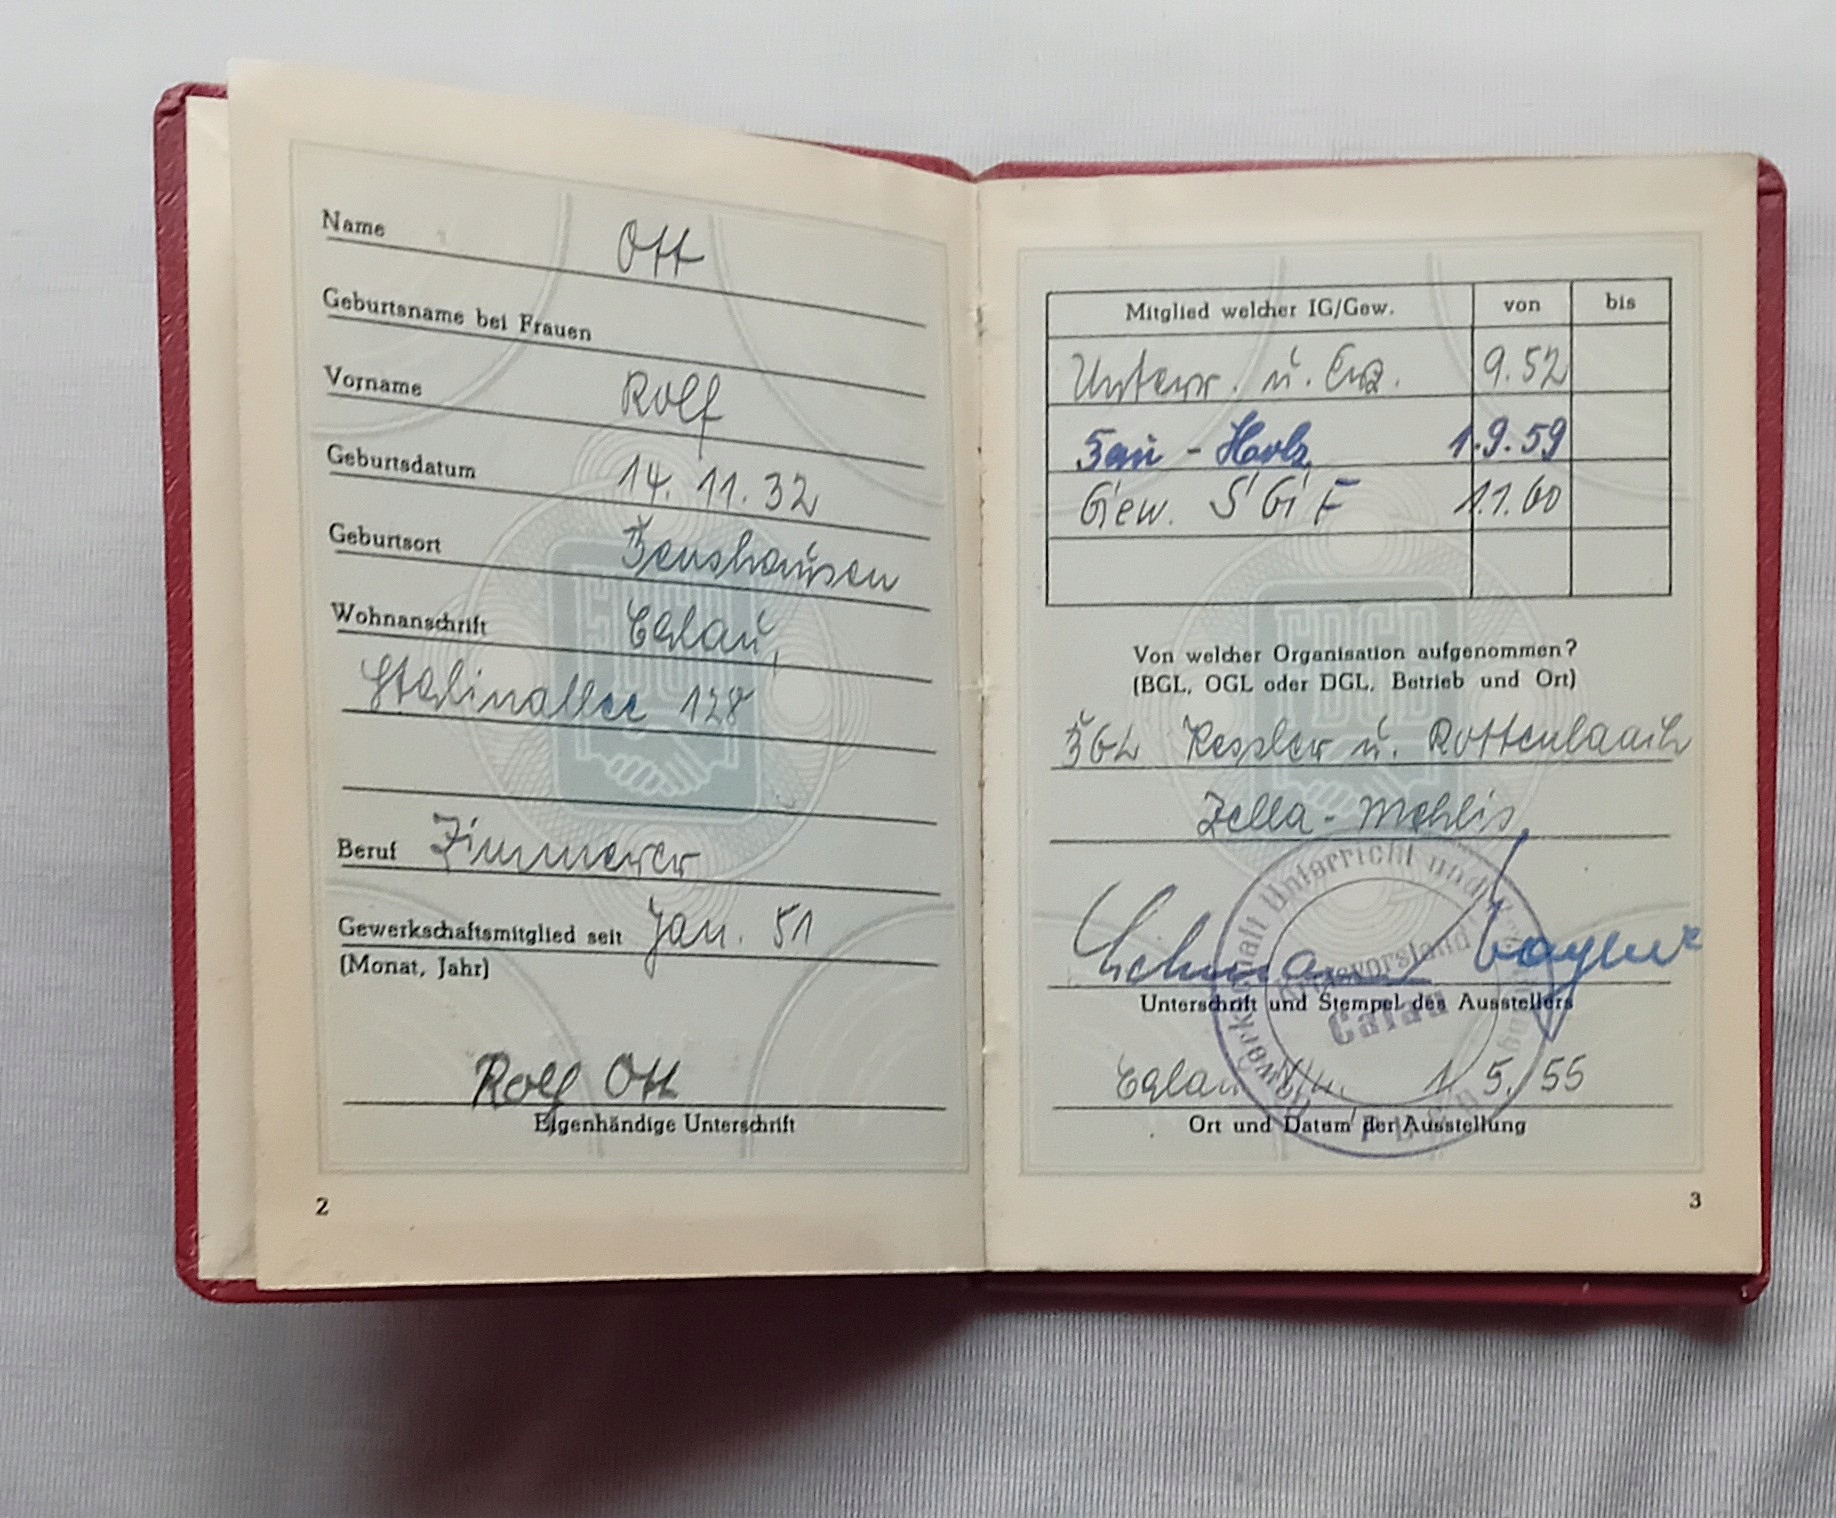 Name Ott
Geburtsname bei Frauen
Vorname Rolf
Geburtsdatum 14. 11. 32
Geburtsort Benshausen
Wohnanschrift Calau,
Stalinallee 128
Beruf Zimmerer
Gewerkschaftsmitglied seit Jan. 51
(Monat, Jahr)
Rolf Ott
Eigenhändige Unterschrift
2
FDGB
Mitglied welcher IG/Gew. von bis
Unterr. u. Erz. 9.52
Bau - Holz 1.9.59
Gew. 1.1.60
FDGB
Von welcher Organisation aufgenommen?
(BGL, OGL oder DGL, Betrieb und Ort)
BGL Kessler u. Rottenbach
Zella-Mehlis
Unterschrift und Stempel des Ausstellers
Gewerkschaft Unterricht und
Calau
Calau 1. 5. 55
Ort und Datum der Ausstellung
3